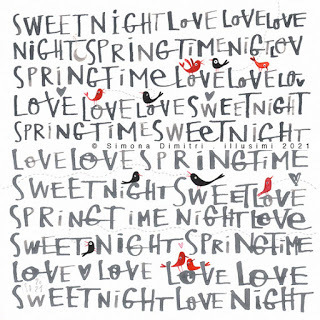 SWEET NIGHT LOVE LOVE LOVE
NIGHT SPRINGTIME NIGT LOV
SPRINGTIME LOVE LOVE LOV
LOVE LOVE LOVE SWEET NIGHT
SPRINGTIME SWEET NIGHT
© Simona Dimitri . illusimi 2021
LOVE LOVE SPRINGTIME
SWEET NIGHT SWEET LOVE
SPRINGTIME NIGHT LOVE
SWEET NIGHT SPRINGTIME
LOVE LOVE LOVE LOVE
SWEET NIGHT LOVE NIGHT